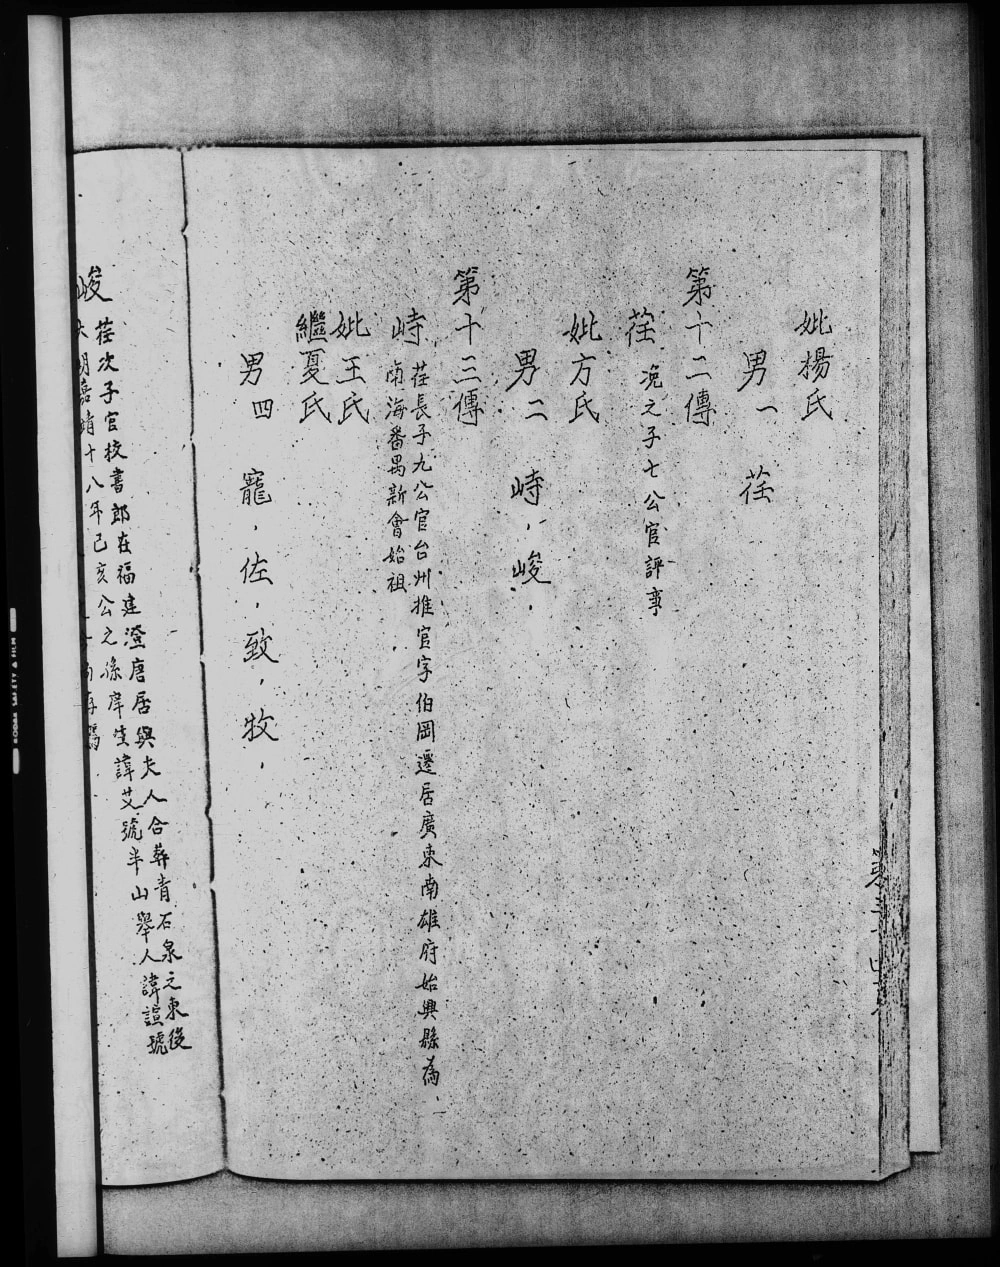 妣楊氏
男一 荏
第十二傳
荏 浼之子七公官評事
妣方氏
男二 峙，峻，
第十三傳
峙 荏長子九公官台州推官字伯岡遷居廣東南雄府始興縣為
南海番禺新會始祖
妣王氏
繼夏氏
男四 寵，佐，致，牧，
峻 荏次子官校書郎在福建澄唐居與夫人合葬青石泉之東後
明嘉靖十八年己亥公之孫庠生諱艾號半山舉人諱諠號